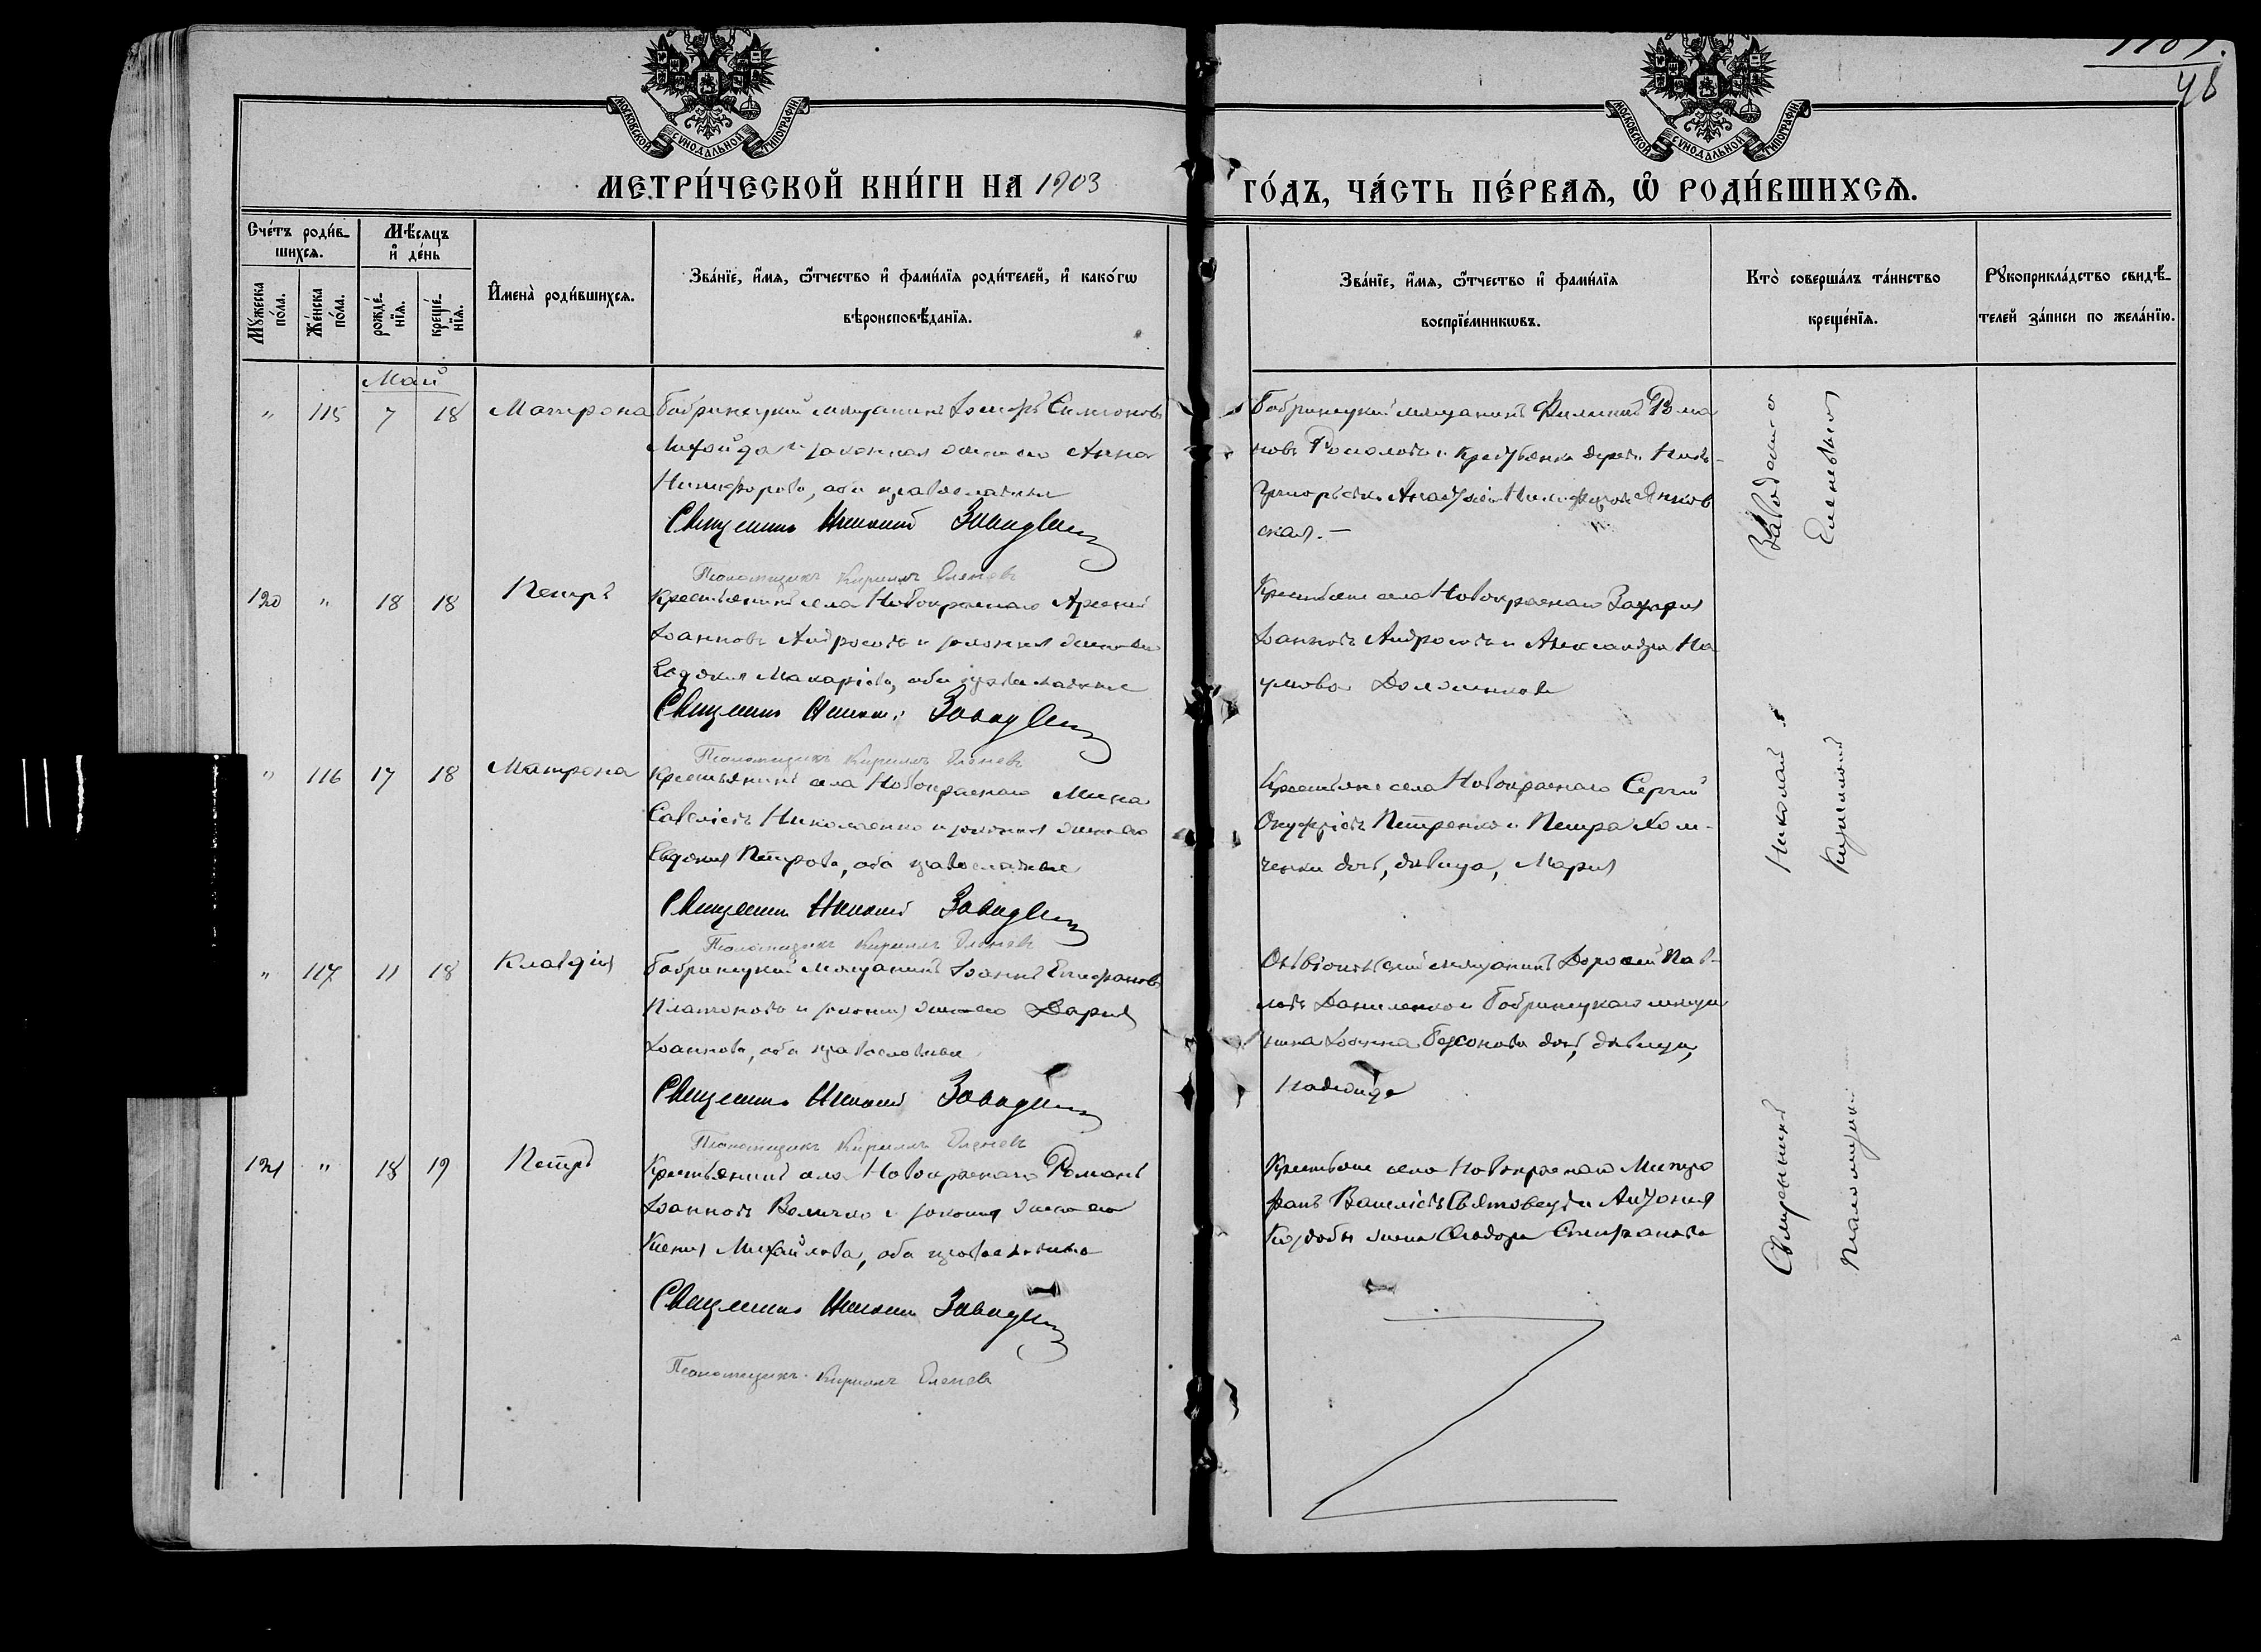 МОСКОВСКОЙ СУНОДАЛЬНОЙ ТИПОГРАФІИ
МОСКОВСКОЙ СУНОДАЛЬНОЙ ТИПОГРАФІИ
48
МЕТРИ́ЧЕСКОЙ КНИ́ГИ НА 1903
ГО́ДЪ, ЧА́СТЬ ПЕ́РВАѦ, Ѡ РОДИ́ВШИХСѦ.
Сче́тъ роди́в-
шихсѧ.
Мѣ́сяцъ
и҆ де́нь
Мꙋ́жеска
по́ла.
Же́нска
по́ла.
рожде́-
нїѧ.
креще́-
нїѧ.
И҆мена̀ роди́вшихсѧ.
Зва́нїе, и҆́мѧ, ѻ҆́тчество и҆ фами́лїѧ роди́телей, и҆ како́гѡ
вѣроисповѣ́данїѧ.
Зва́нїе, и҆́мѧ, ѻ҆́тчество и҆ фами́лїѧ
воспрїе́мникѡвъ.
Кто̀ соверша́лъ та́инство
креще́нїѧ.
Рꙋкоприкла́дство свидѣ́-
телей за́писи по жела́нїю.
Май
" 115 7 18 Матрона Бобринецкий мещанинъ Симеоновъ
и законная жена его Анна
Никифорова, оба православные
Священникъ Николай Завадский
Псаломщикъ Кириллъ Еленевъ
Бобринецкий мещанинъ Филиппъ Рома
новъ и крестьянка дерев.
Никифорова Янков
ская.—
120 " 18 18 Петръ Крестьянинъ села Новокраснаго Арсений
Іоанновъ Андросовъ и законная жена его
Евдокия Макариева, оба православные
Священникъ Николай Завадский
Псаломщикъ Кириллъ Еленевъ
Крестьяне села Новокраснаго Захария
Іоанновъ Андросовъ и Александра На
умова Доломанова
" 116 17 18 Матрона Крестьянинъ села Новокраснаго Мина
Савелієвъ Николаенко и законная жена его
Евдокия Петрова, оба православные
Священникъ Николай Завадский
Псаломщикъ Кириллъ Еленевъ
Крестьяне села Новокраснаго Сергий
Онуфріевъ Петренко и Петра Хом-
ченки дочь, дѣвица, Мария
" 117 11 18 Клавдия Бобринецкий мещанинъ Іоаннъ Епифановъ
Платоновъ и законная жена его Дария
Іоаннова, оба православные
Священникъ Николай Завадский
Псаломщикъ Кириллъ Еленевъ
мещанинъ Дорофей Пав-
ловъ Даниленко и Бобринецкаго меща
нина Іоанна дочь, дѣвица,
Надежда
121 " 18 19 Петръ Крестьянинъ села Новокраснаго Романъ
Іоанновъ Величко и законная жена его
Ксения Михайлова, оба православные
Священникъ Николай Завадский
Псаломщикъ Кириллъ Еленевъ
Крестьяне села Новокраснаго Митро
фанъ и Антония
жена Феодора Епифанова
Священникъ Николай Завадский
Псаломщикъ Кириллъ Еленевъ